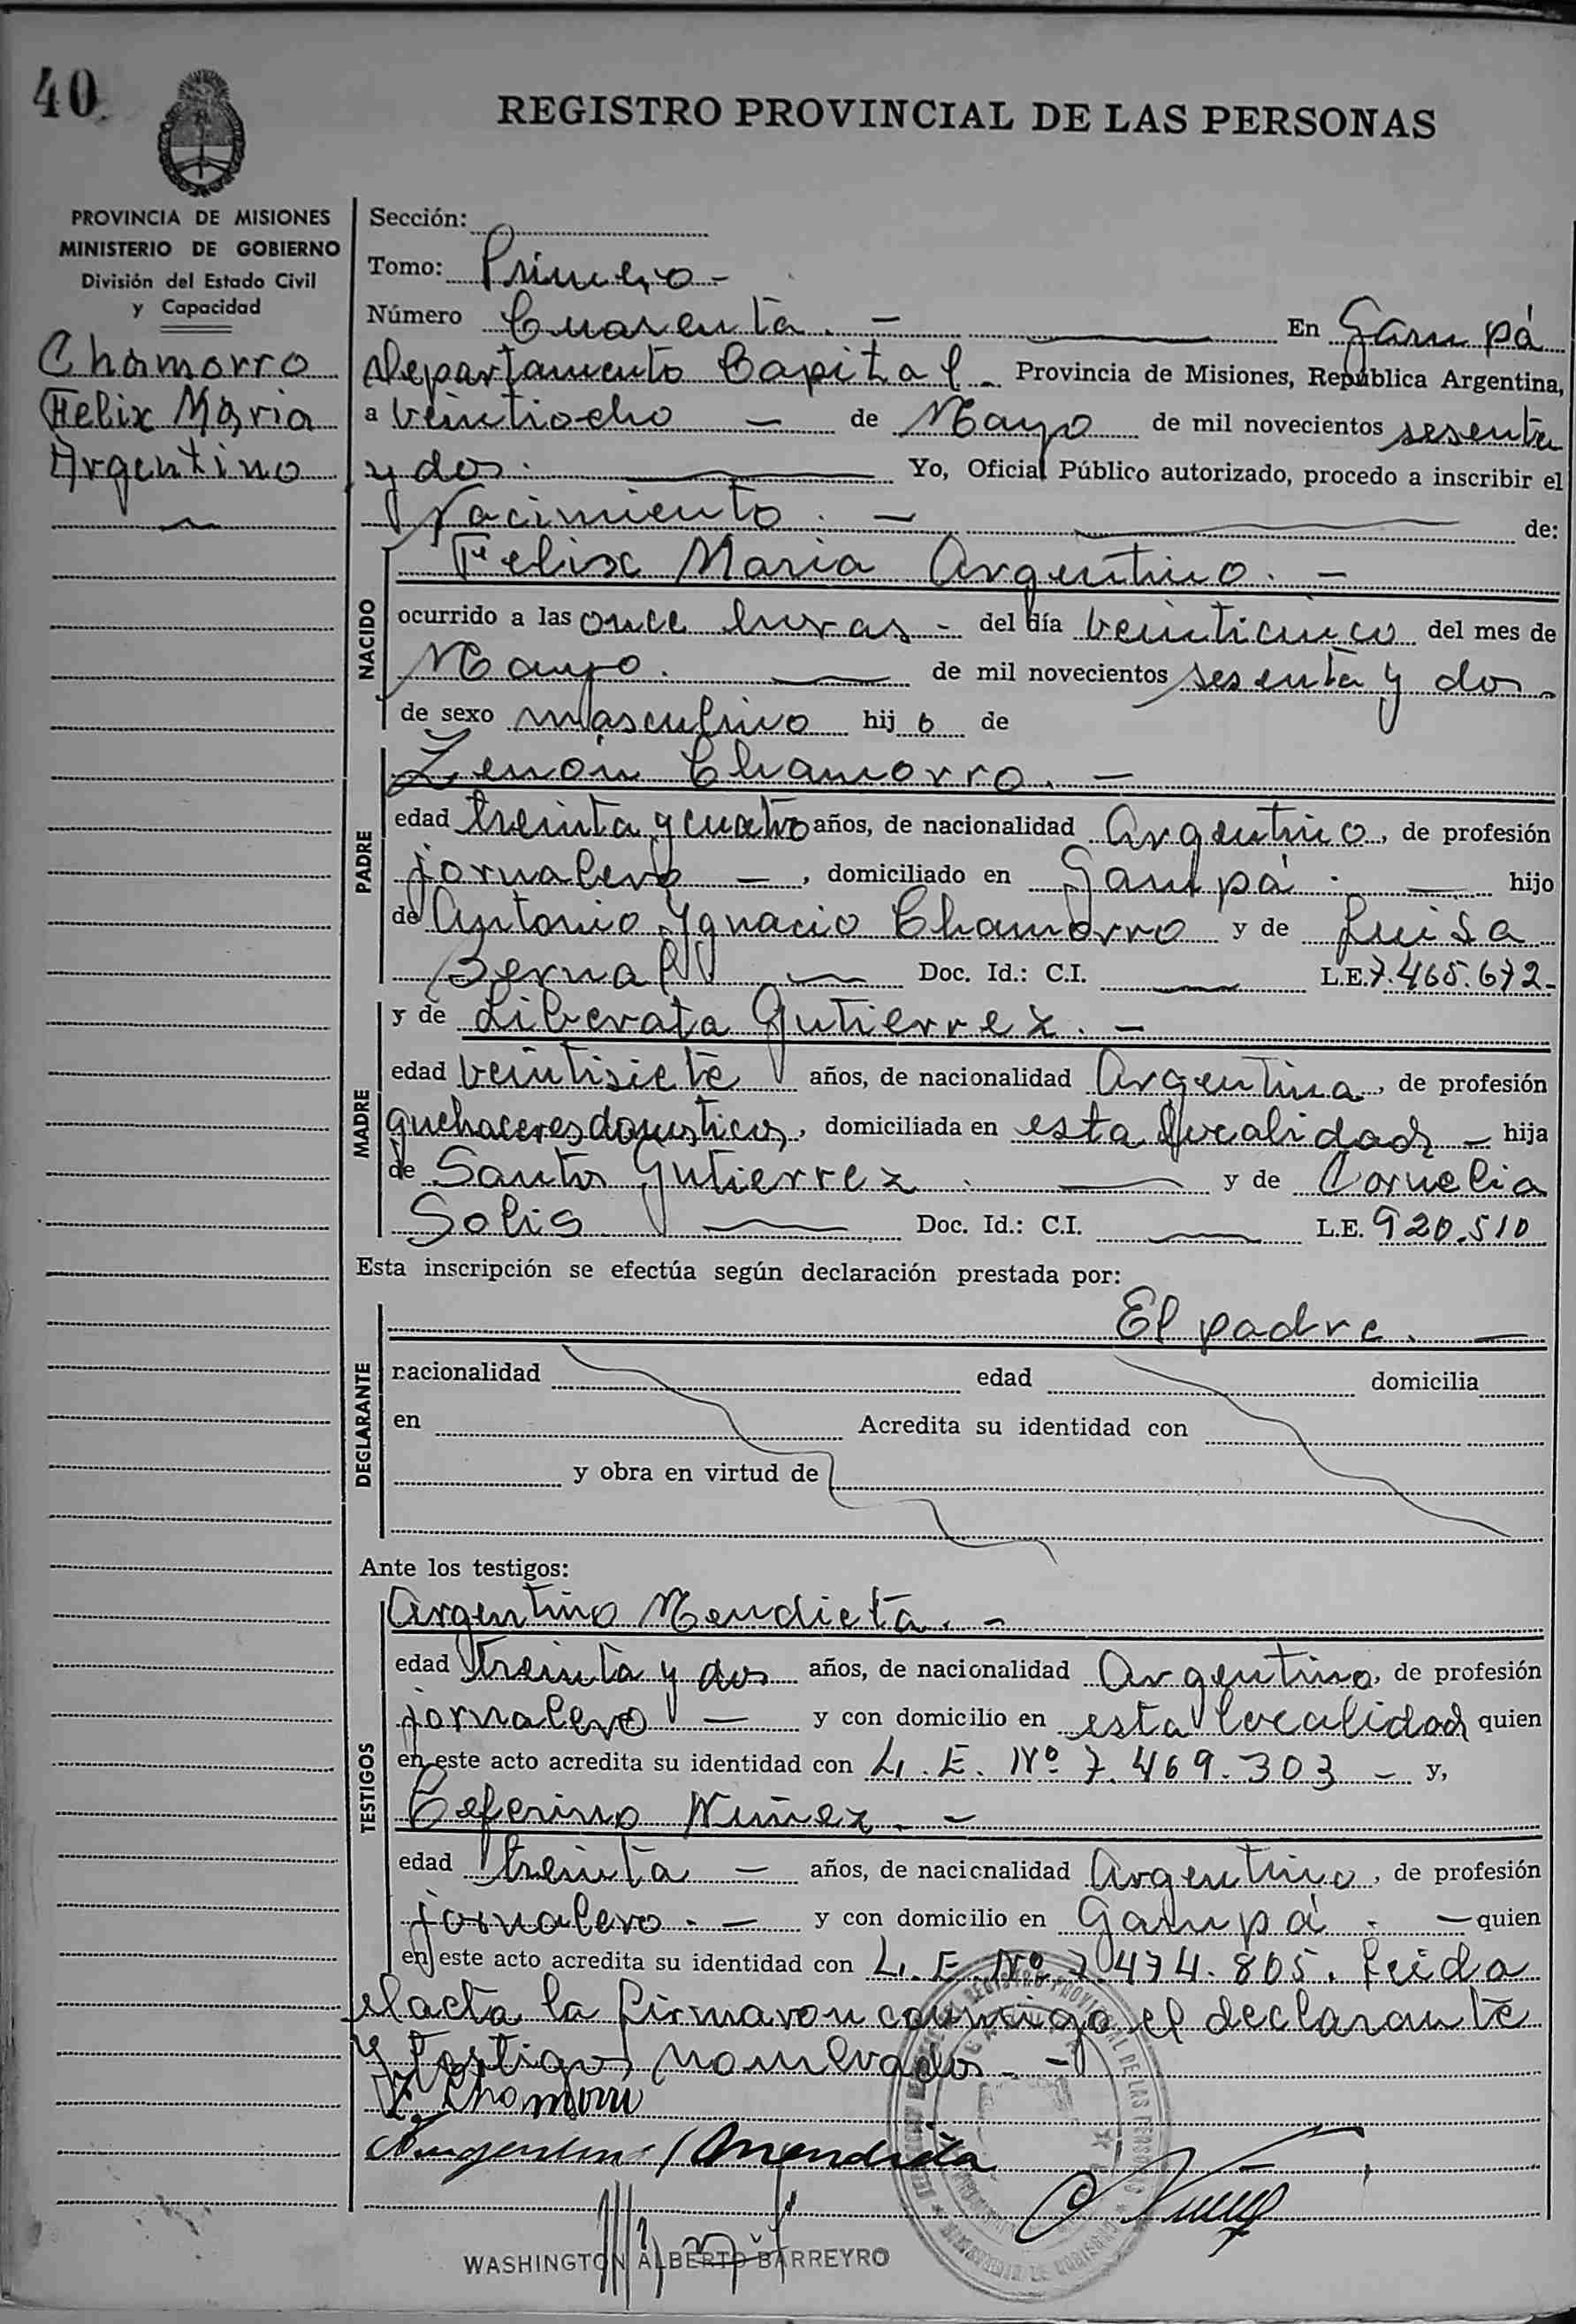 40
REGISTRO PROVINCIAL DE LAS PERSONAS
PROVINCIA DE MISIONES
MINISTERIO DE GOBIERNO
División del Estado Civil
y Capacidad
Chamorro
Felix Maria
Argentino
Sección:
Tomo: Primero -
Número Cuarenta. - En Garupá
Departamento Capital - Provincia de Misiones, República Argentina,
a veintiocho - de Mayo de mil novecientos sesenta
y dos. Yo, Oficial Público autorizado, procedo a inscribir el
Nacimiento. - de:
NACIDO
Felix Maria Argentino. -
ocurrido a las once horas - del día veinticinco del mes de
Mayo. de mil novecientos sesenta y dos -
de sexo masculino hij o de
PADRE
Zenón Chamorro. -
edad treinta y cuatro años, de nacionalidad Argentino, de profesión
jornalero -, domiciliado en Garupá. - hijo
de Antonio Ygnacio Chamorro y de Luisa
Bernal - Doc. Id.: C.I. - L.E. 7.465.672-
MADRE
y de Liberata Gutierrez. -
edad veintisiete años, de nacionalidad Argentina, de profesión
quehaceres domesticos, domiciliada en esta localidad - hija
de Santos Gutierrez. - y de Cornelia
Solis - Doc. Id.: C.I. - L.E. 920.510
Esta inscripción se efectúa según declaración prestada por:
DECLARANTE
El padre. -
nacionalidad edad domicilia
en Acredita su identidad con
y obra en virtud de
Ante los testigos:
TESTIGOS
Argentino Mendieta. -
edad treinta y dos años, de nacionalidad Argentino, de profesión
jornalero - y con domicilio en esta localidad quien
en este acto acredita su identidad con L. E. Nº 7.469.303 - y,
Ceferino Nuñez. -
edad treinta - años, de nacionalidad Argentino, de profesión
jornalero. - y con domicilio en Garupá. - quien
en este acto acredita su identidad con L. E. Nº 7.474.805. Leida
el acta la firmaron conmigo el declarante
y testigos nombrados. -
Z Chamorro
Argentino Mendieta
C Nuñez
WASHINGTON ALBERTO BARREYRO